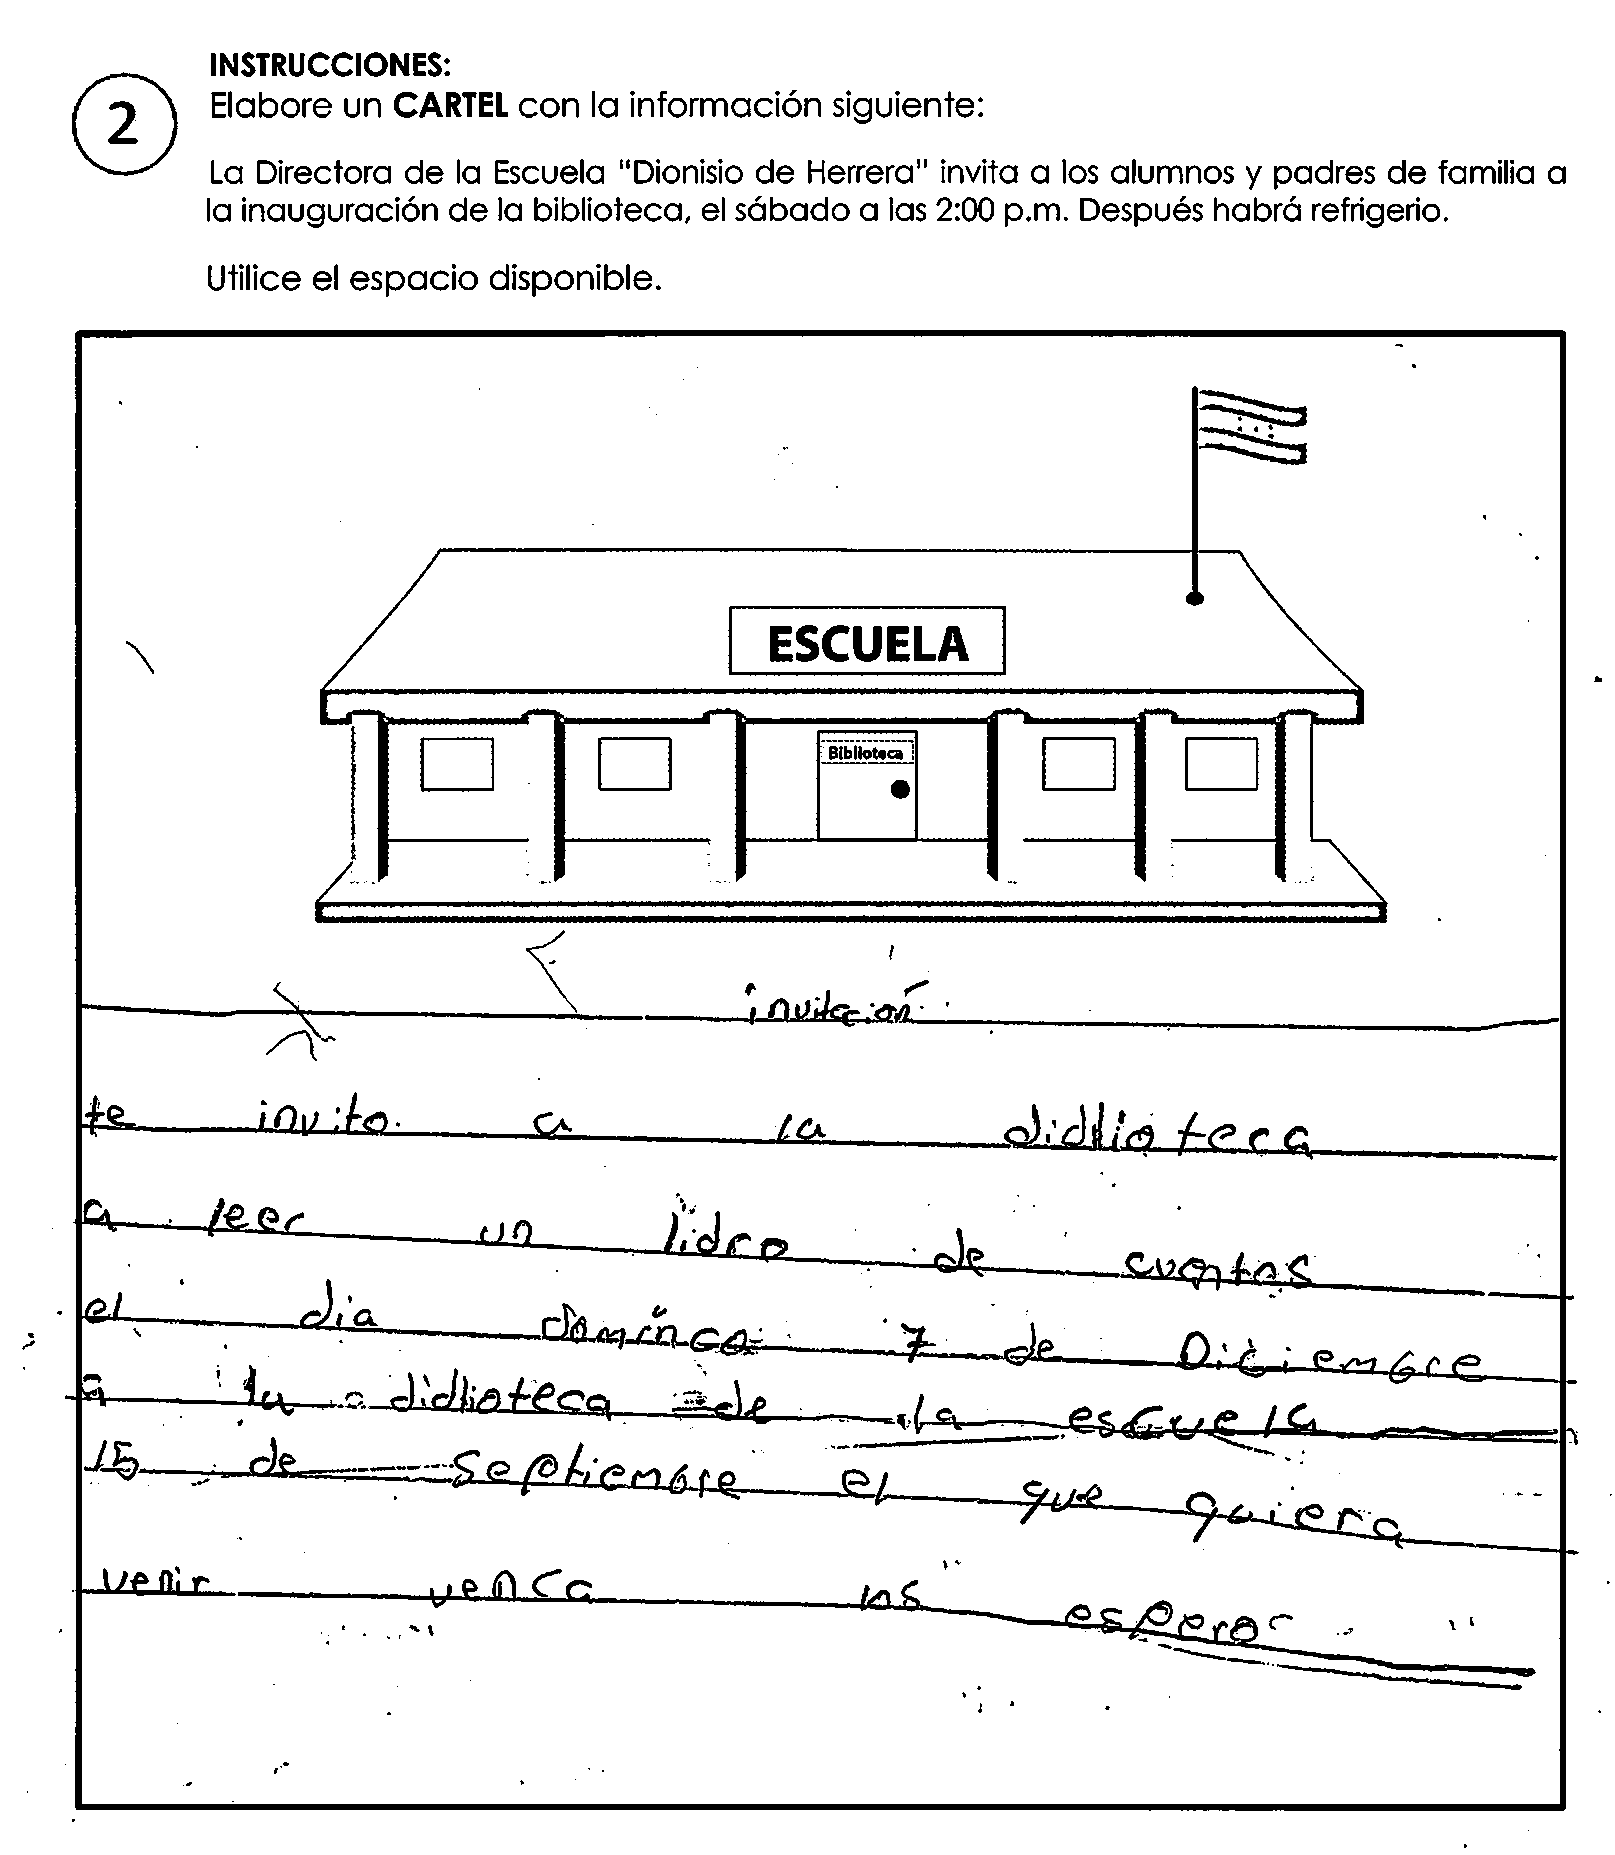 INSTRUCCIONES:
2
Elabore un CARTEL con la información siguiente:
La Directora de la Escuela "Dionisio de Herrera" invita a los alumnos y padres de familia a
la inauguración de la biblioteca, el sábado a las 2:00 p.m. Después habrá refrigerio.
Utilice el espacio disponible.
ESCUELA
Biblioteca
invitación
te invito a la didlioteca
a leer un lidro de cuentos
el dia dominco 7 de Diciembre
a la didlioteca de la escuela
15 de Septiembre el que quiera
venir venca los espero